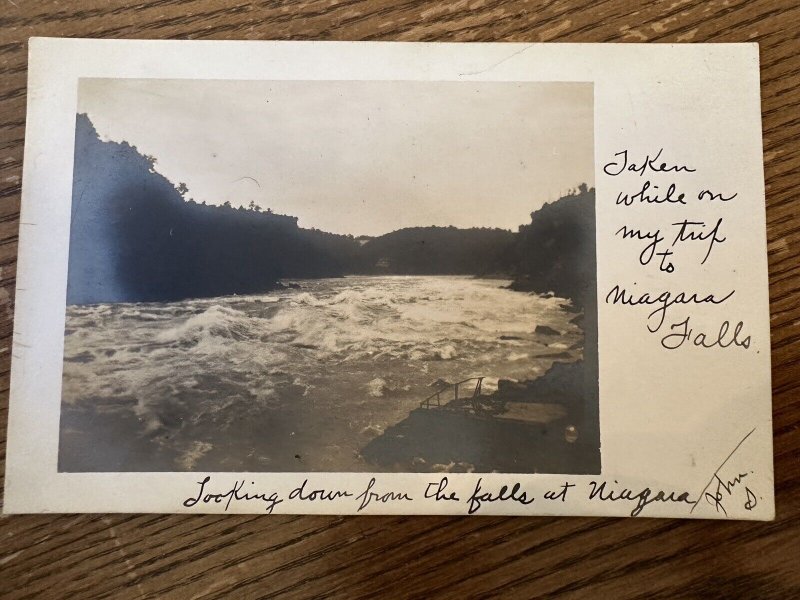 Taken
while on
my trip
to
Niagara
Falls.
Looking down from the falls at Niagara
John.
S.